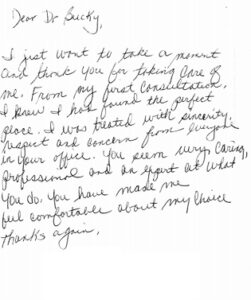 Dear Dr Bucky,
I just want to take a moment
and thank you for taking care of
me. From my first consultation,
I knew I had found the perfect
place. I was treated with sincerity,
respect and concern from everyone
in your office. You seem very caring,
professional and an expert at what
you do. You have made me
feel comfortable about my choice
thanks again,